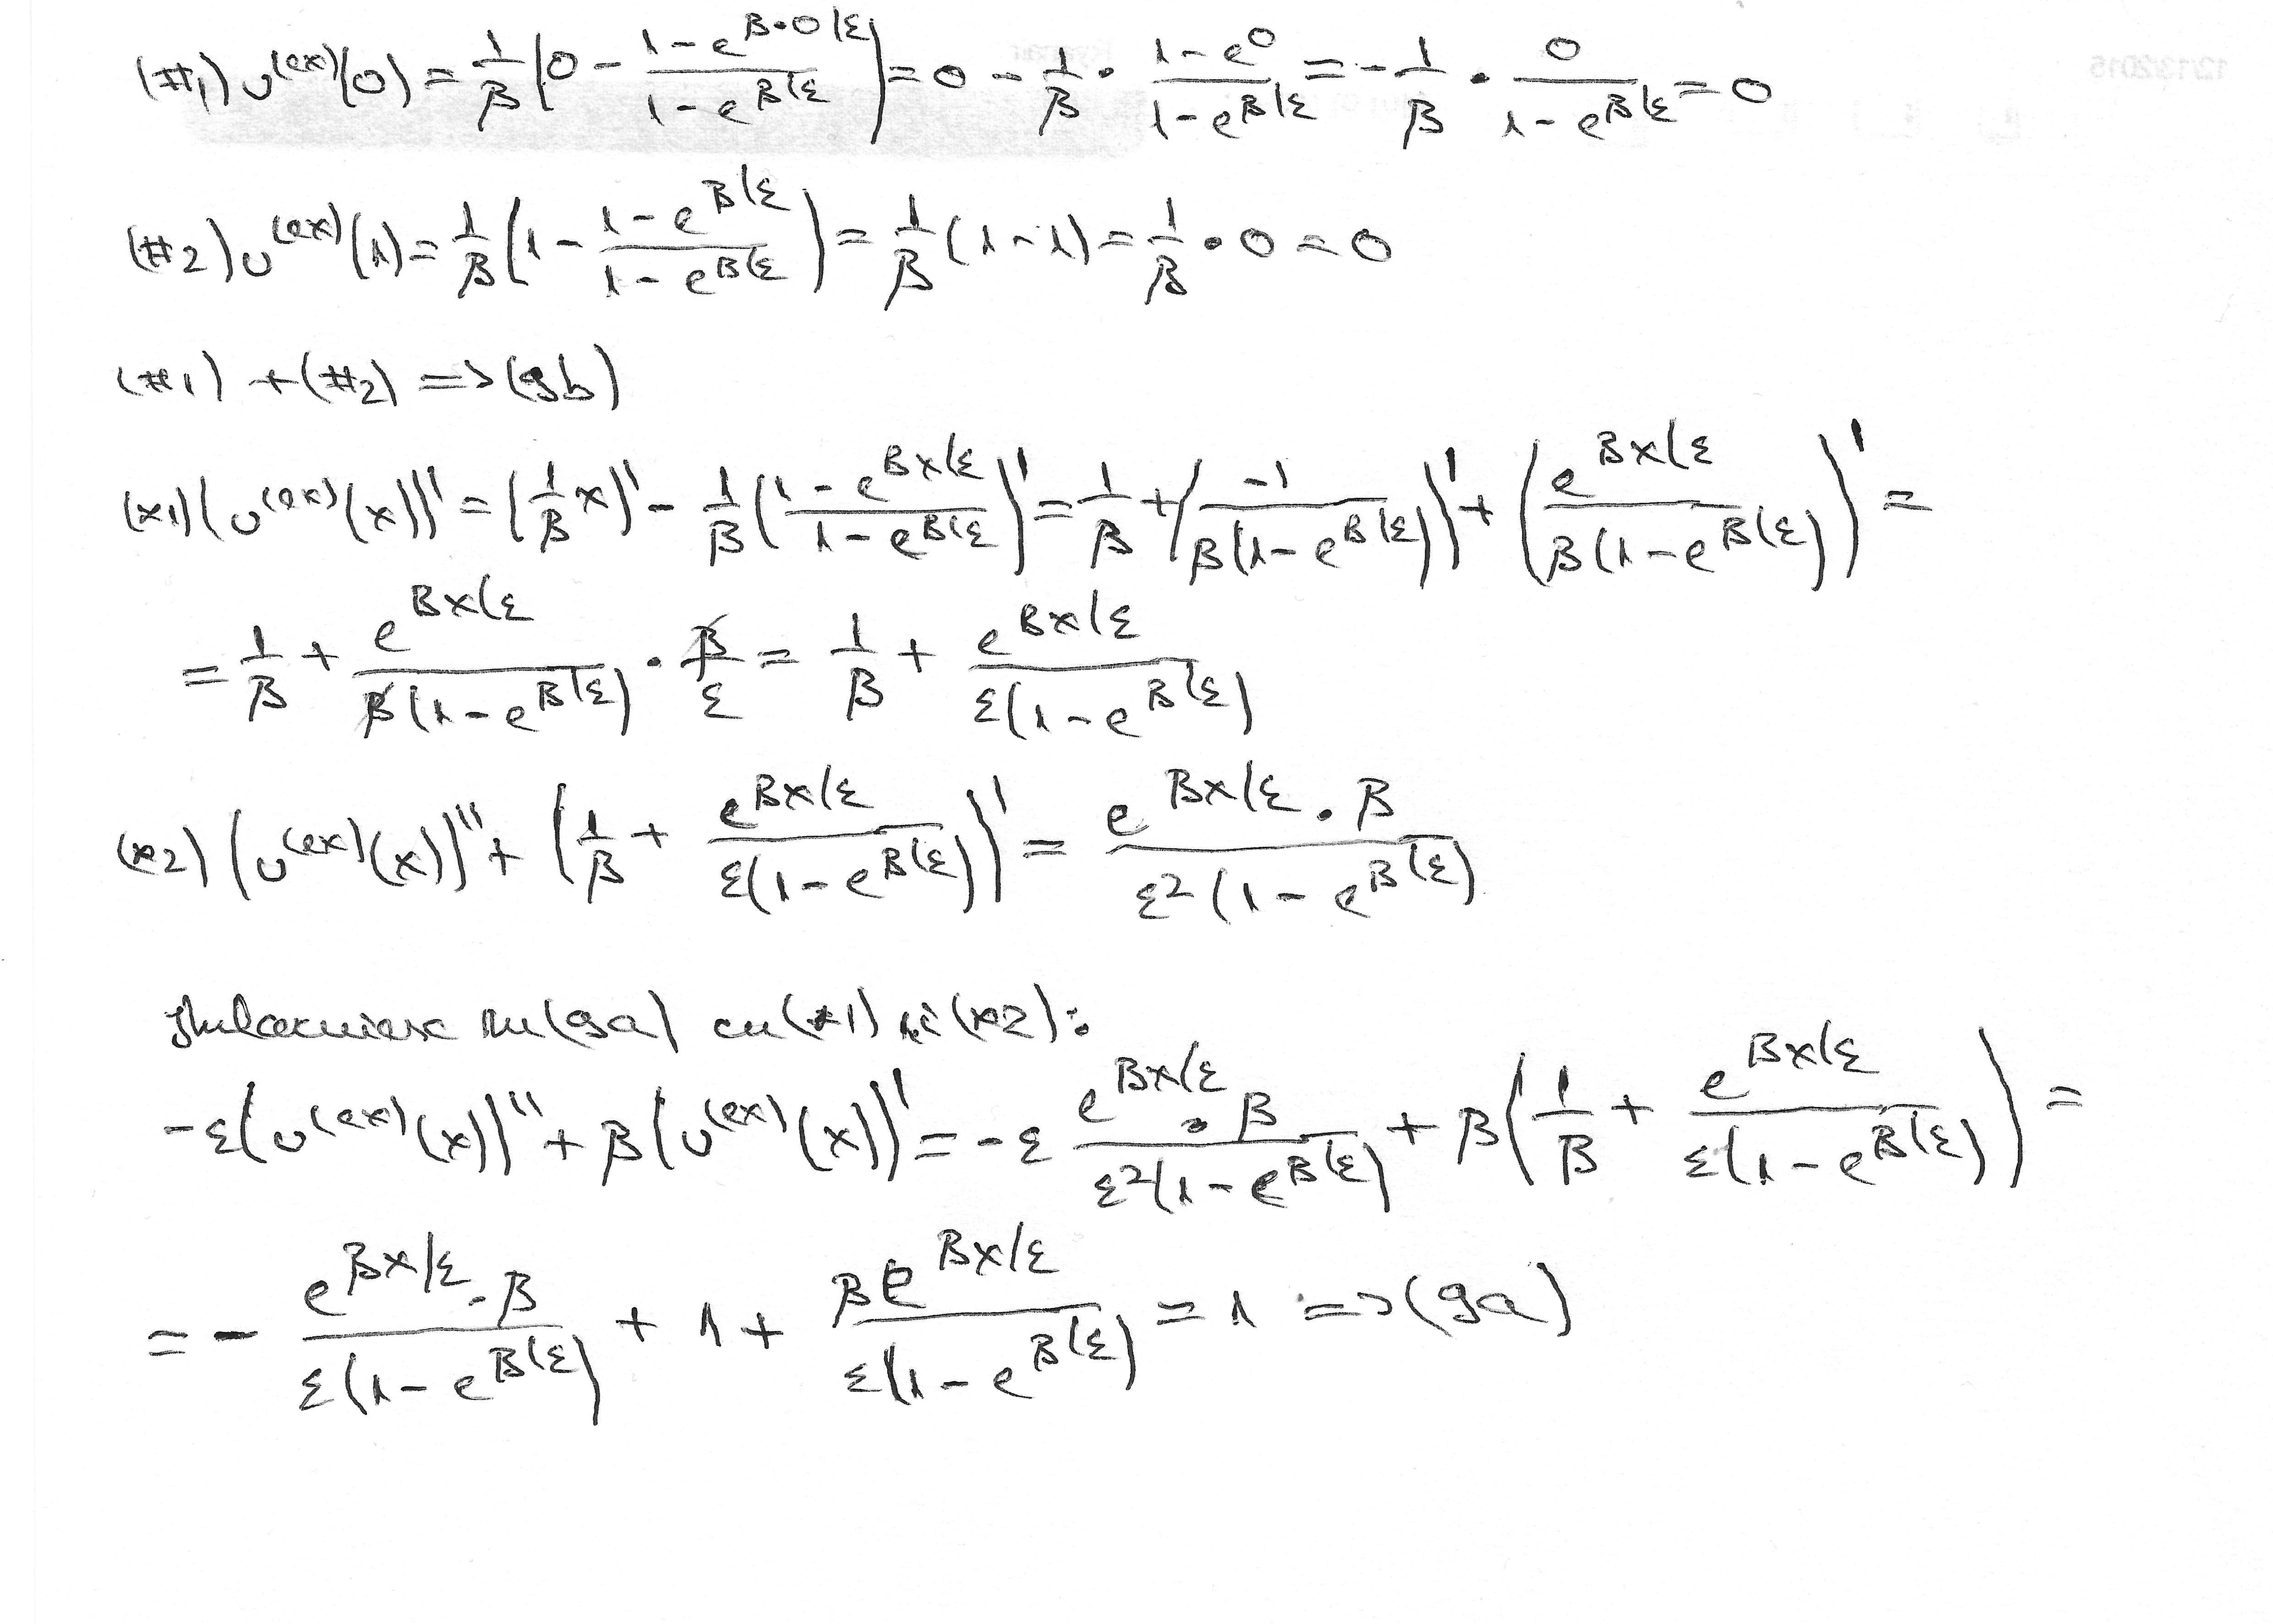 (#1) υ^(ex)(0) = 1/β (0 - (1-e^{β·0/ε})/(1-e^{β/ε})) = 0 - 1/β · (1-e^0)/(1-e^{β/ε}) = -1/β · 0/(1-e^{β/ε}) = 0
12/13/2015
(#2) υ^(ex)(1) = 1/β (1 - (1-e^{β/ε})/(1-e^{β/ε})) = 1/β (1-1) = 1/β · 0 = 0
(#1) + (#2) => (9b)
(*1) (υ^(ex)(x))' = (1/β x)' - 1/β ((1-e^{βx/ε})/(1-e^{β/ε}))' = 1/β + (-1/(β(1-e^{β/ε})))' + (e^{βx/ε}/(β(1-e^{β/ε})))' =
= 1/β + e^{βx/ε}/(β(1-e^{β/ε})) · β/ε = 1/β + e^{βx/ε}/(ε(1-e^{β/ε}))
(*2) (υ^(ex)(x))'' + (1/β + e^{βx/ε}/(ε(1-e^{β/ε})))' = (e^{βx/ε} · β)/(ε²(1-e^{β/ε}))
(9a) cu (*1) (*2):
-ε(υ^(ex)(x))'' + β(υ^(ex)(x))' = -ε (e^{βx/ε} · β)/(ε²(1-e^{β/ε})) + β(1/β + e^{βx/ε}/(ε(1-e^{β/ε}))) =
= - (e^{βx/ε} · β)/(ε(1-e^{β/ε})) + 1 + (βe^{βx/ε})/(ε(1-e^{β/ε})) = 1 => (9a)